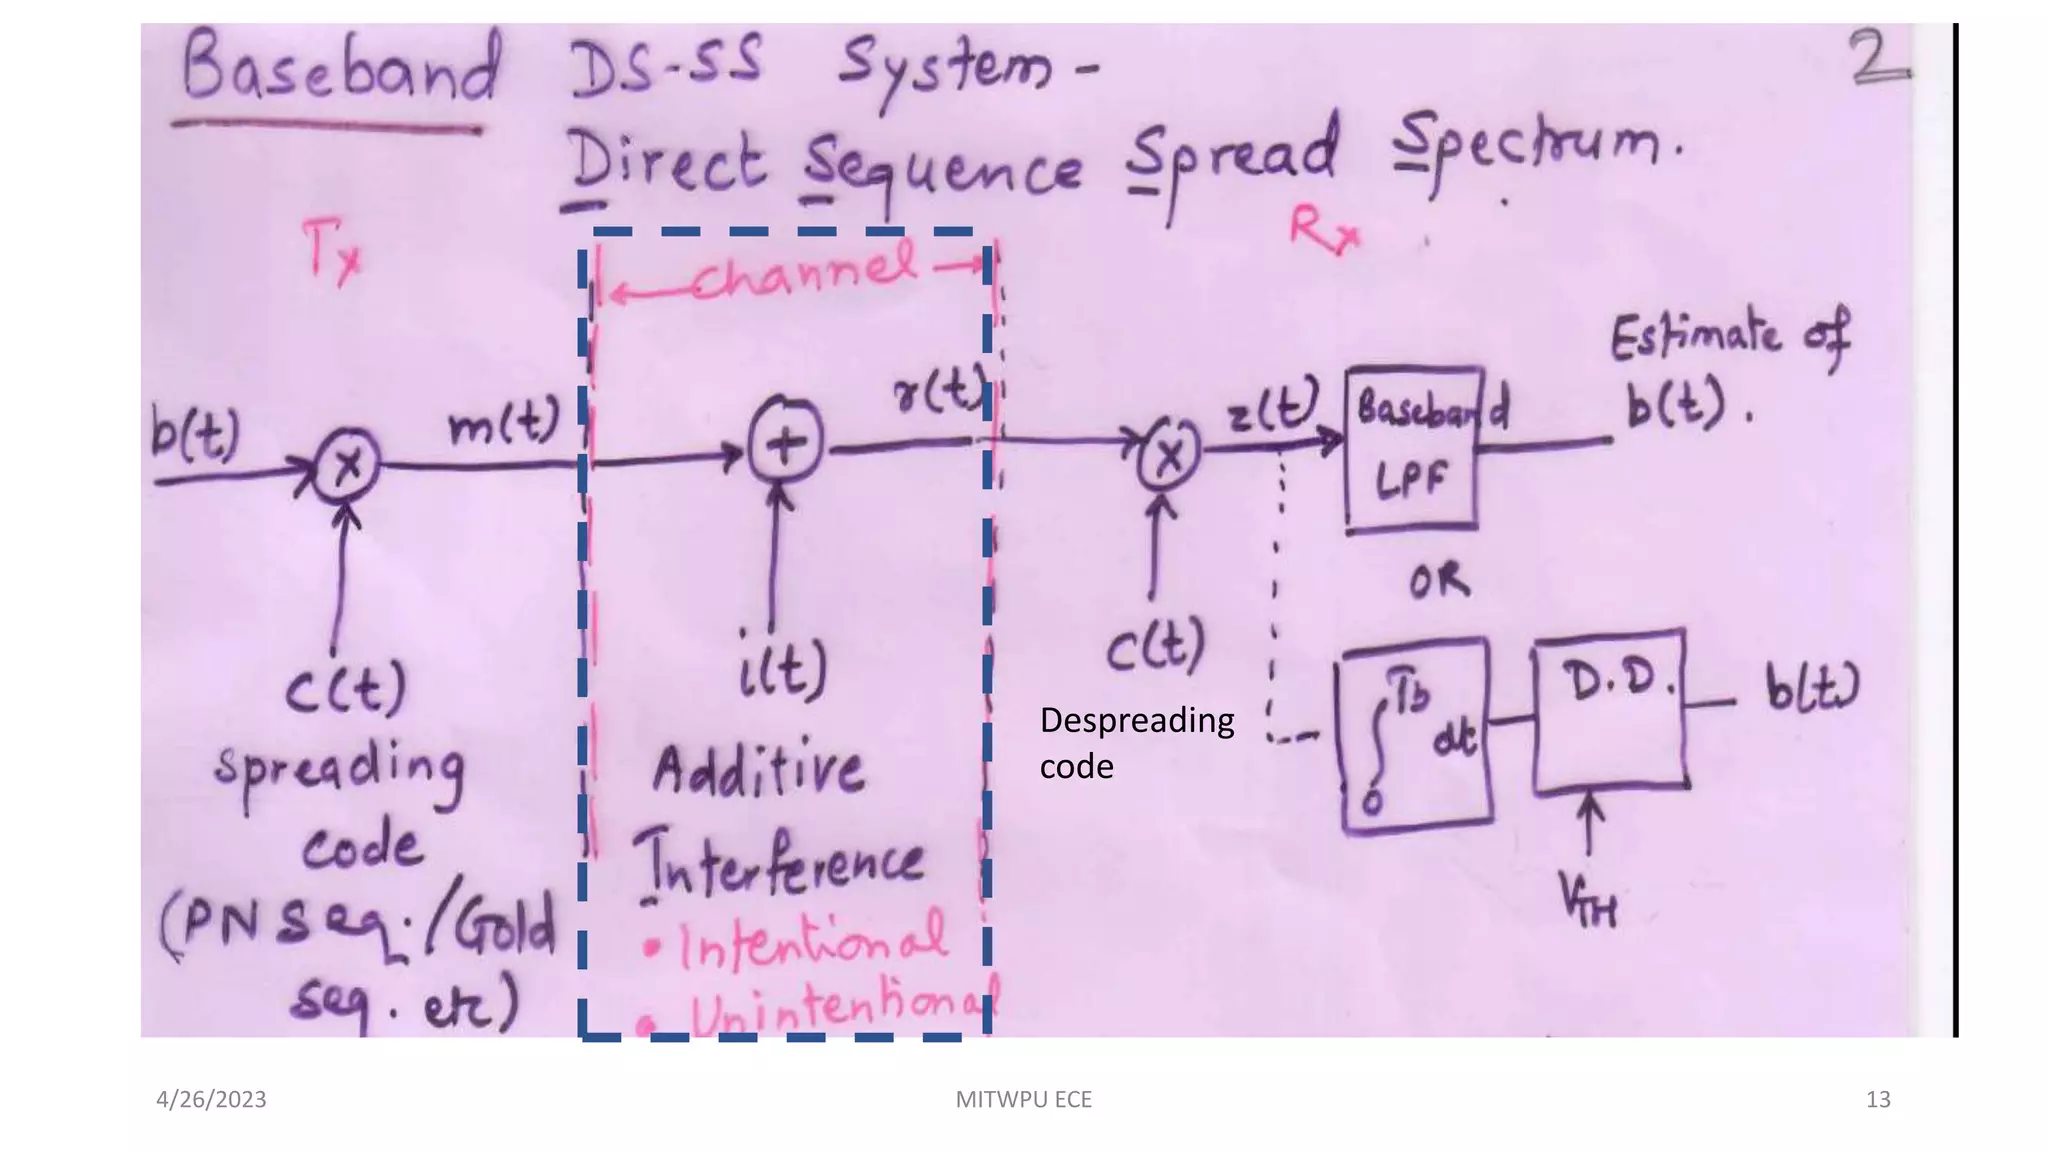 Baseband DS-SS System - 2
Direct Sequence Spread Spectrum.
Tx
channel
Rx
b(t)
×
m(t)
+
r(t)
×
z(t)
Baseband
LPF
Estimate of
b(t).
OR
c(t)
spreading
code
(PN seq./Gold
seq. etc)
i(t)
Additive
Interference
• Intentional
• Unintentional
c(t)
Despreading
code
∫ Tb
0 dt
D.D.
b(t)
VTH
4/26/2023 MITWPU ECE 13